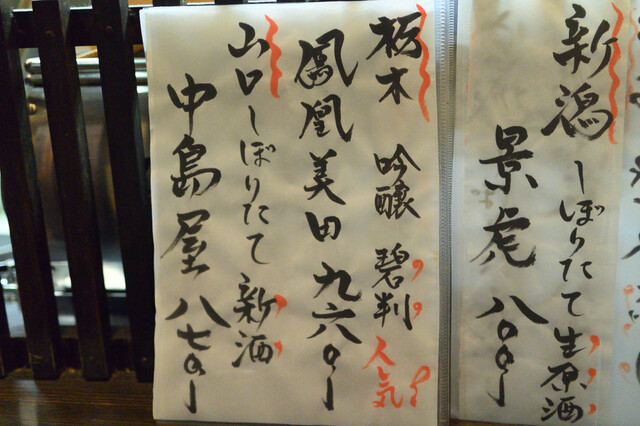 新潟 しぼりたて生原酒
景虎 八〇〇ー
栃木 吟醸 碧判 人気!
鳳凰美田 九六〇ー
山口しぼりたて 新酒
中島屋 八七〇ー